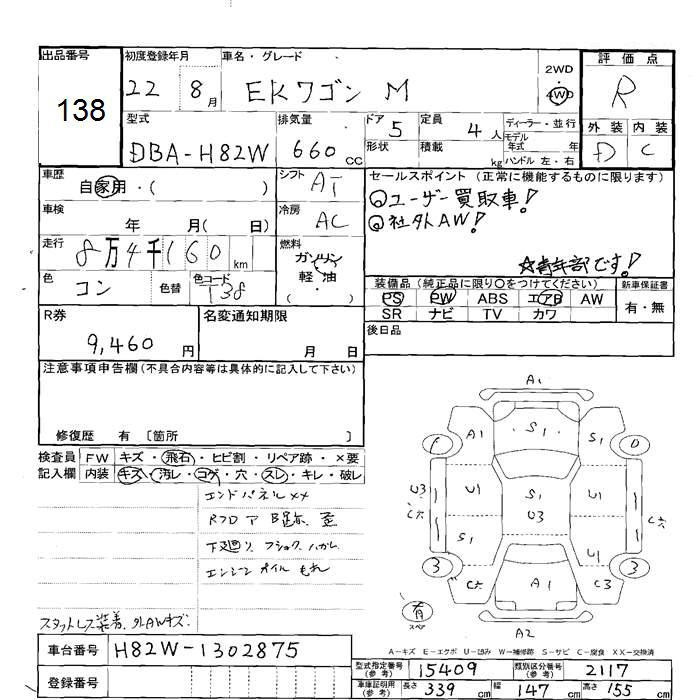 出品番号
138
初度登録年月
22 8月
車名・グレード
EKワゴン M
2WD
4WD
評価点
R
外装 内装
D C
型式
DBA-H82W
排気量
660cc
ドア 5
形状
定員 4人
積載 kg
ディーラー・並行
モデル年式 年
ハンドル 左・右
車歴
自家用・( )
シフト AT
車検
年 月( 日)
冷房 AC
走行
8万4千160km
燃料
ガソリン
軽・油
色
コン
色替
色コード
T38
セールスポイント(正常に機能するものに限ります)
◎ユーザー買取車!
◎社外AW!
☆青年部です!
装備品(純正品に限り〇をつけてください)
PS PW ABS エアB AW
SR ナビ TV カワ
新車保証書
有・無
後日品
R券
9,460円
名変通知期限
月 日
注意事項申告欄(不具合内容等は具体的に記入して下さい)
修復歴 有 〔箇所 〕
検査員記入欄
FW キズ・飛石・ヒビ割・リペア跡・×要
内装 キズ・汚レ・コゲ・穴・スレ・キレ・破レ
エンドパネル××
下廻り
エンジンオイルもれ
スタットレス装着、外AWキズ
A1
A1 S1 S1
U3 U1 S1 U1
U3
S1 U1
A1 C3
3 3
有
スペア
A2
A-キズ E-エクボ U-凹み W-補修跡 S-サビ C-腐食 XX-交換済
車台番号
H82W-1302875
登録番号
型式指定番号(参考) 15409
類別区分番号(参考) 2117
車庫証明用(参考)
長さ 339cm 幅 147cm 高さ 155cm